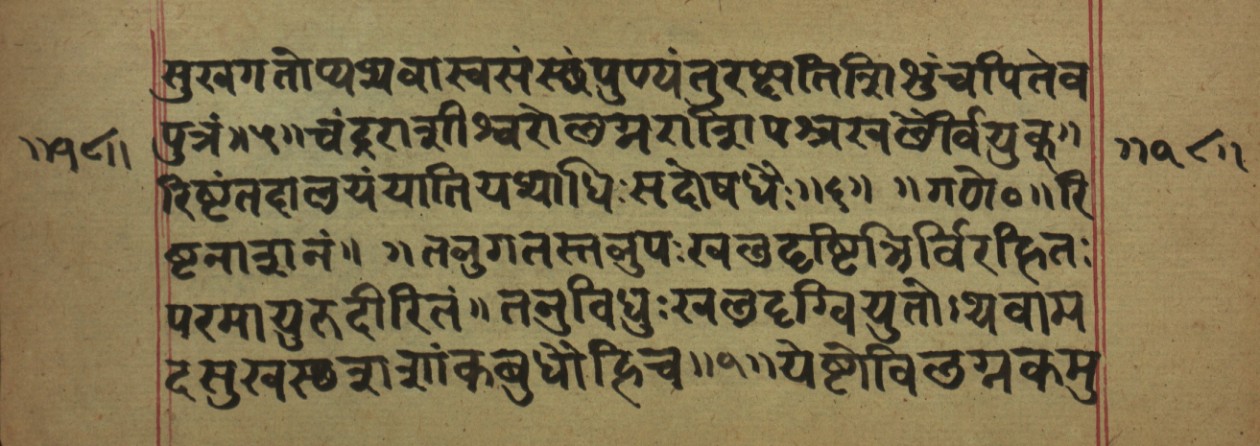 सुखगतोप्यथवास्वसंस्छंपुण्यंतुरष्कृतिन्शिभुंचपितेव
पुत्रं॥५॥चंद्रराशीश्वरोलग्नराशिपश्चखलैर्वियुक्॥
॥१८॥
॥१८॥
रिष्टंतदालयंयातियथाधिःसदोषधैः॥६॥ ॥गणे०॥रि
ष्टनाशनं॥ ॥तनुगतस्तनुपःखलदृष्टिभिर्विरहितः
परमायुरुदीरितं॥तनुविधुःखलदृग्वियुतोऽथवाम
दसुखस्छशशांकबुधौहिच॥१॥येष्टौविलग्नकमु